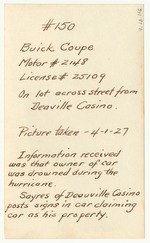 #150
Buick Coupe
Motor # 2148
License # 25109
On lot across street from
Deaville Casino.
Picture taken - 4-1-27
Information received
was that owner of car
was drowned during the
hurricane.
Sayres of Deauville Casino
posts signs in car claiming
car as his property.